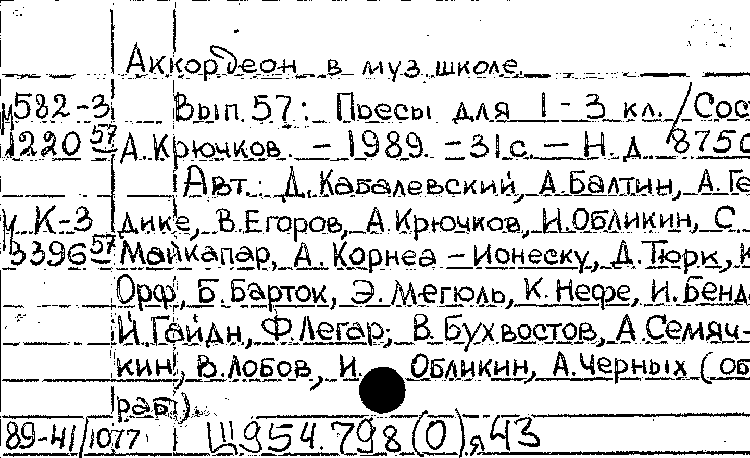 Аккордеон в муз. школе.
у582-3 Вып. 57: Пьесы для 1-3 кл. / Сос
1220 57 А. Крючков. – 1989. – 31 с. – Н. д. 8750
Авт.: Д. Кабалевский, А. Балтин, А. Ге
у К-3 дике, В. Егоров, А. Крючков, И. Обликин, С
3396 57 Майкапар, А. Корнеа – Ионеску, Д. Тюрк, К
Орф, Б. Барток, Э. Мегюль, К. Нефе, И. Бенда
Й. Гайдн, Ф. Легар; В. Бухвостов, А. Семяч-
кин, В. Лобов, И. Обликин, А. Черных (об
раб).
89-41/1077 Щ954.798(0)я43